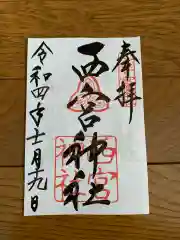 奉拝
西宮神社
令和四年十一月十九日
西宮
神社